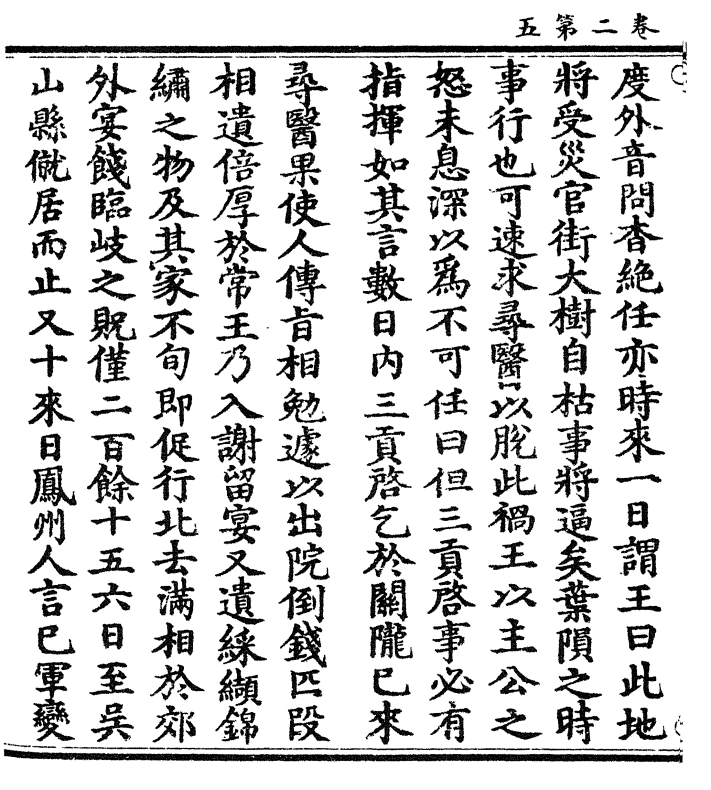 卷二第五
度外音問杳絶任亦時來一日謂王曰此地
將受災官街大樹自枯事將逼矣葉隕之時
事行也可速求尋醫以脫此禍王以主公之
怒未息深以爲不可任曰但三貢啓事必有
指揮如其言數日內三貢啓乞於關隴已來
尋醫果使人傳旨相勉遽以出院例錢匹段
相遺倍厚於常王乃入謝留宴又遺綵纈錦
繡之物及其家不旬即促行北去滿相於郊
外宴餞臨岐之貺僅二百餘十五六日至吳
山縣僦居而止又十來日鳳州人言已軍變